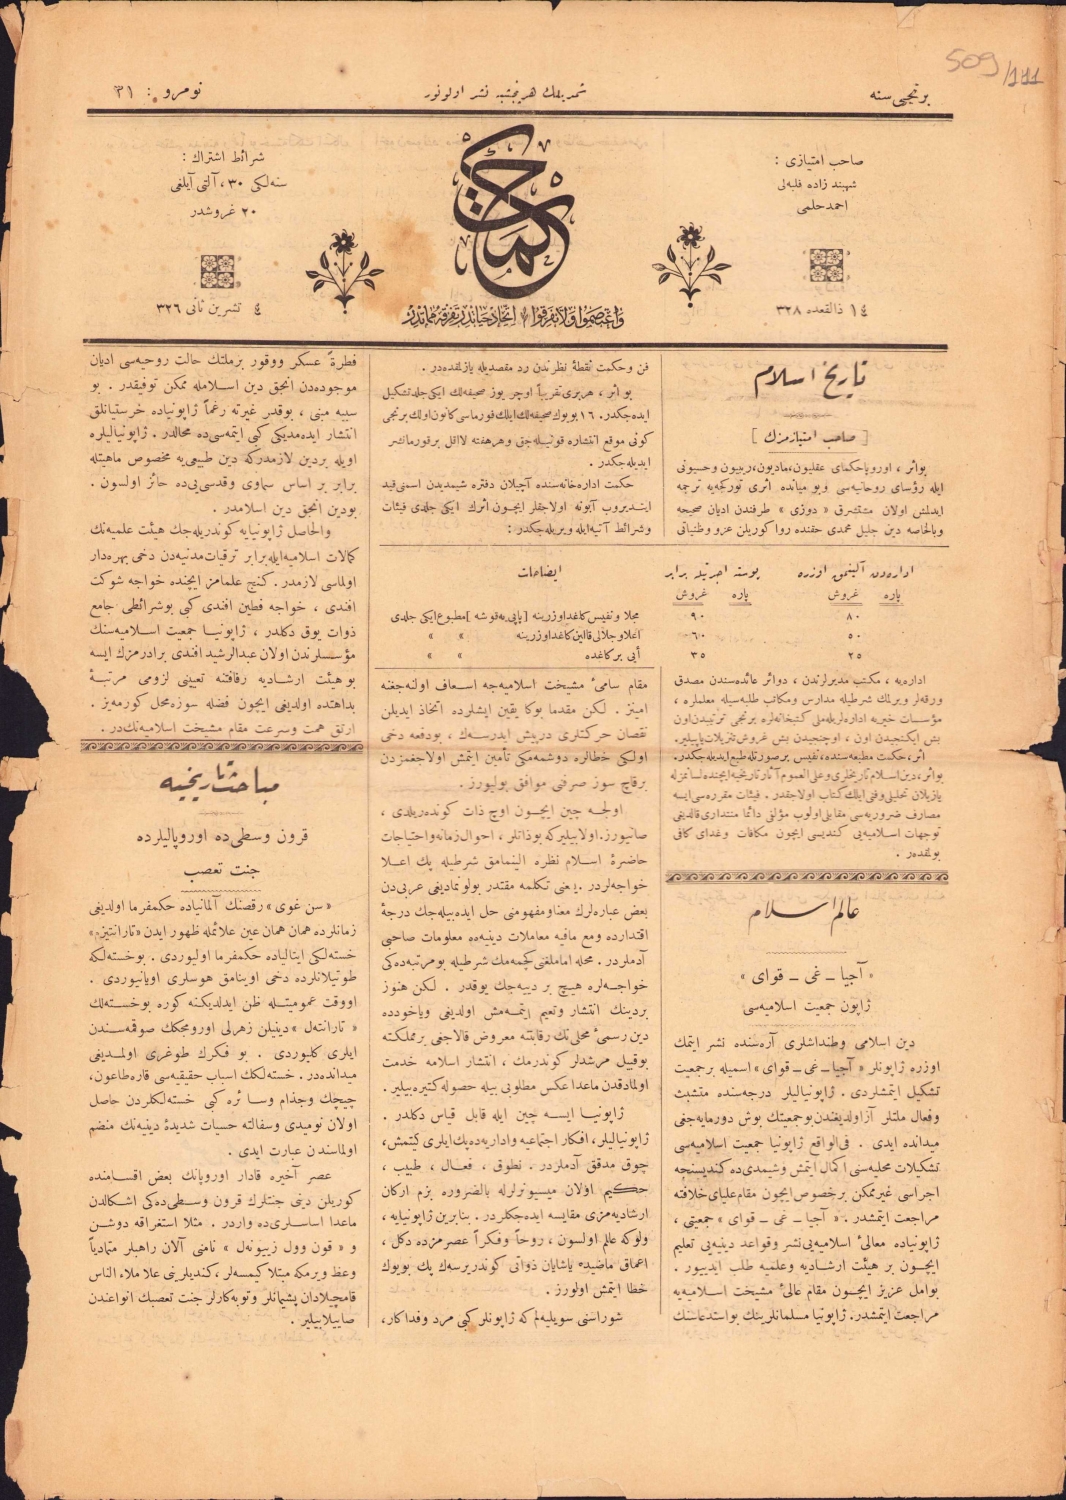 509/111
برنجی سنه
شمدیلك هر پنجشنبه نشر اولونور
نومرو : ۳۱
صاحب امتیازی :
شهبندر زاده فلبه‌لی
احمد حلمی
حكمت
واعتصموا ولا تفرقوا اتحاد حیاتدر تفرقه مماتدر
شرائط اشتراك :
سنه‌لكی ۳۰ ، آلتی آیلغی
۲۰ غروشدر
۱٤ ذالقعده ۳۲۸
٤ تشرین ثانی ۳۲٦
تاریخ اسلام
[ صاحب امتیازمزك ]
بو اثر ، اوروپا حكمای عقلیون ، مادیون ، ربیون وحسیونی
ایله رؤسای روحانیه‌سی وبو میانده اثری توركجه‌یه ترجمه
ایدلمش اولان مستشرق « دوزی » طرفندن ادیان صحیحه
وبالخاصه دین جلیل محمدی حقنده روا كوریلن عزو وظنیاتی
فن وحكمت نقطهٔ نظرندن رد مقصدیله یازلمقده‌در .
بو اثر ، هربری تقریباً اوچر یوز صحیفه‌لك ایكی جلد تشكیل
ایده‌جكدر . ۱٦ بویوك صحیفه‌لك ایلك فورماسی كانون اولك برنجی
كونی موقع انتشاره قونیله‌جق وهر هفته لااقل بر فورما نشر
ایدیله‌جكدر .
حكمت اداره‌خانه‌سنده آچیلان دفتره شیمدیدن اسمنی قید
ایتدیروب آبونه اولاجقلر ایچون اثرك ایكی جلدی فیئات
وشرائط آتیه ایله ویریله‌جكدر :
اداره‌دن آلینمق اوزره
پوسته اجرتیله برابر
ایضاحات
پاره غروش
پاره غروش
۸۰ ۹۰ مجلا ونفیس كاغد اوزرینه [ پاپیه قوشه ] مطبوع ایكی جلدی
۵۰ ٦۰ اعلا وجلالی قالین كاغد اوزرینه » »
۲۵ ۳۵ آبی بر كاغده » »
اداره‌یه ، مكتب مدیرلرندن ، دوائر عائده‌سندن مصدق
ورقه‌لر ویرلمك شرطیله مدارس ومكاتب طلبه‌سیله معلملره ،
مؤسسات خیریه اداره‌لریله ملی كتبخانه‌لره برنجی ترتیبدن اون
بش ایكنجیدن اون ، اوچنجیدن بش غروش تنزیلات یاپیلیر .
اثر ، حكمت مطبعه‌سنده ، نفیس بر صورتله طبع ایدیله‌جكدر .
بو اثر ، دین اسلام تاریخلری وعلی العموم آثار تاریخیه ایچنده لسانمزله
یازیلان تحلیلی وفنی ایلك كتاب اولاجقدر . فیئات مقرره‌سی ایسه
مصارف ضروریه‌سی مقابلی اولوب مؤلفی دائما منتداری قالدیغی
توجهات اسلامیه‌یی كندیسی ایچون مكافات وغدای كافی
بولمقده‌در .
عالم اسلام
« آجیا ــ غی ــ قوای »
ژاپون جمعیت اسلامیه‌سی
دین اسلامی وطنداشلری آره‌سنده نشر ایتمك
اوزره ژاپونلر « آجیا ــ غی ــ قوای » اسمیله بر جمعیت
تشكیل ایتمشلردی . ژاپونیالیلر درجه‌سنده متشبث
وفعال ملتلر آز اولدیغندن بو جمعیتك بوش دورمایه‌جغی
میدانده ایدی . فی الواقع ژاپونیا جمعیت اسلامیه‌سی
تشكیلات محلیه‌سنی اكمال ایتمش وشیمدی‌ده كندیسنجه
اجراسی غیر ممكن بر خصوص ایچون مقام علیای خلافته
مراجعت ایتمشدر . « آجیا ــ غی ــ قوای » جمعیتی ،
ژاپونیاده معالیٔ اسلامیه‌یی نشر وقواعد دینیه‌یی تعلیم
ایچون بر هیئت ارشادیه وعلمیه طلب ایدییور .
بو امل عزیز ایچون مقام عالیٔ مشیخت اسلامیه‌یه
مراجعت ایتمشدر . ژاپونیا مسلمانلرینك بو استدعاسنك
مقام سامیٔ مشیخت اسلامیه‌جه اسعاف اولنه‌جغنه
امینز . لكن مقدما بوكا یقین ایشلرده اتخاذ ایدیلن
نقصان حركتلری درپیش ایدرسه‌ك ، بو دفعه دخی
اولكی خطالره دوشمه‌مكی تأمین ایتمش اولاجغمزدن
برقاچ سوز صرفنی موافق بولیورز .
اولجه چین ایچون اوچ ذات كوندریلدی ،
صانیورز . اولابیلیر كه بو ذاتلر ، احوال زمانه واحتیاجات
حاضرهٔ اسلام نظره الینمامق شرطیله پك اعلا
خواجه‌لردر . یعنی تكلمه مقتدر بولونمادیغی عربی‌دن
بعض عباره‌لرك معنا ومفهومنی حل ایده‌بیله‌جك درجهٔ
اقتدارده ومع مافیه معاملات دینیه‌ده معلومات صاحبی
آدملردر . محله اماملغنی كچمه‌مك شرطیله بو مرتبه‌ده‌كی
خواجه‌لره هیچ بر دییه‌جك یوقدر . لكن هنوز
بر دینك انتشار وتعیم ایتمه‌مش اولدیغی ویاخودده
دین رسمیٔ محلی‌نك رقابتنه معروض قالاجغی بر مملكته
بو قبیل مرشدلر كوندرمك ، انتشار اسلامه خدمت
اولمادقدن ماعدا عكس مطلوبی بیله حصوله كتیره‌بیلیر .
ژاپونیا ایسه چین ایله قابل قیاس دكلدر .
ژاپونیالیلر ، افكار اجتماعیه واداریه‌ده پك ایلری كیتمش ،
چوق مدقق آدملردر . نطوق ، فعال ، طبیب ،
حكیم اولان میسیونرلرله بالضروره بزم اركان
ارشادیه‌مزی مقایسه ایده‌جكلردر . بنابرین ژاپونیایه ،
ولوكه عالم اولسون ، روحاً وفكراً عصرمزده دكل ،
اعماق ماضیده یاشایان ذواتی كوندریرسه‌ك پك بویوك
خطا ایتمش اولورز .
شوراسنی سویلیه‌لم كه ژاپونلر كبی مرد وفداكار ،
فطرةً عسكر ووقور بر ملتك حالت روحیه‌سی ادیان
موجوده‌دن انجق دین اسلامله ممكن توفیقدر . بو
سببه مبنی ، بوقدر غیرته رغماً ژاپونیاده خرستیانلق
انتشار ایده‌مدیكی كبی ایتمه‌سی‌ده محالدر . ژاپونیالیلره
اویله بر دین لازمدر كه دین طبیعی‌یه مخصوص ماهیتله
برابر بر اساس سماوی وقدسی‌یی‌ده حائز اولسون .
بو دین انجق دین اسلامدر .
والحاصل ژاپونیایه كوندریله‌جك هیئت علمیه‌نك
كمالات اسلامیه ایله برابر ترقیات مدنیه‌دن دخی بهره‌دار
اولماسی لازمدر . كنج علمامز ایچنده خواجه شوكت
افندی ، خواجه فطین افندی كبی بو شرائطی جامع
ذوات یوق دكلدر ، ژاپونیا جمعیت اسلامیه‌سنك
مؤسسلرندن اولان عبدالرشید افندی برادرمزك ایسه
بو هیئت ارشادیه رفاقتنه تعیینی لزومی مرتبهٔ
بداهتده اولدیغی ایچون فضله سوزه محل كورمه‌یز .
ارتق همت وسرعت مقام مشیخت اسلامیه‌نك‌در .
مباحث تاریخیه
قرون وسطی‌ده اوروپالیلرده
جنت تعصب
« سن غوی » رقصنك آلمانیاده حكمفرما اولدیغی
زمانلرده همان همان عین علائمله ظهور ایدن « تارانتیزم »
خسته‌لكی ایتالیاده حكمفرما اولیوردی . بو خسته‌لكه
طوتیلانلرده دخی اوینامق هوسلری اویانیوردی .
اووقت عمومیتله ظن ایدلدیكنه كوره بو خسته‌لك
« تارانتل » دینیلن زهرلی اورومجكك صوقمه‌سندن
ایلری كلیوردی . بو فكرك طوغری اولمدیغی
میدانده‌در . خسته‌لكك اسباب حقیقیه‌سی قاره طاعون ،
چیچك وجذام وسائره كبی خسته‌لكلردن حاصل
اولان نومیدی وسفالته حسیات شدیدهٔ دینیه‌نك منضم
اولماسندن عبارت ایدی .
عصر آخیره قادار اوروپانك بعض اقسامنده
كوریلن دینی جنتلرك قرون وسطی‌ده‌كی اشكالدن
ماعدا اساسلری‌ده واردر . مثلا استغراقه دوشن
و « قون وول زیونه‌ل » نامنی آلان راهبلر متمادیاً
وعظ ویرمكه مبتلا كیمسه‌لر ، كندیلرینی علا ملاء الناس
قامچیلادان پشیمانلر وتوبه‌كارلر جنت تعصبك انواعندن
صاییلابیلیر .